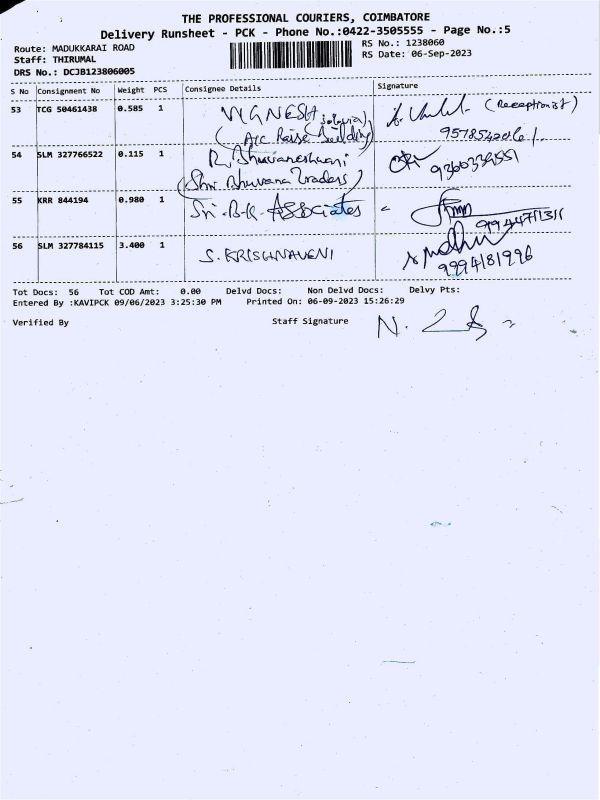 THE PROFESSIONAL COURIERS, COIMBATORE
Delivery Runsheet - PCK - Phone No.:0422-3505555 - Page No.:5
Route: MADUKKARAI ROAD
RS No.: 1238060
Staff: THIRUMAL
RS Date: 06-Sep-2023
DRS No.: DCJB123806005
S No Consignment No Weight PCS Consignee Details Signature
53 TCG 50461438 0.585 1 VIGNESH (Receptionist)
Building)
54 SLM 327766522 0.115 1 R. Bhuvaneshwari
(Shri Bhuvana Traders)
55 KRR 844194 0.980 1 Sri. B.K. ASSociates
56 SLM 327784115 3.400 1 S. KRISHNAVENI
9994181996
Tot Docs: 56 Tot COD Amt: 0.00 Delvd Docs: Non Delvd Docs: Delvy Pts:
Entered By :KAVIPCK 09/06/2023 3:25:30 PM Printed On: 06-09-2023 15:26:29
Verified By Staff Signature